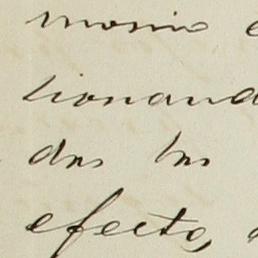 monio
cionand
das las
efecto,